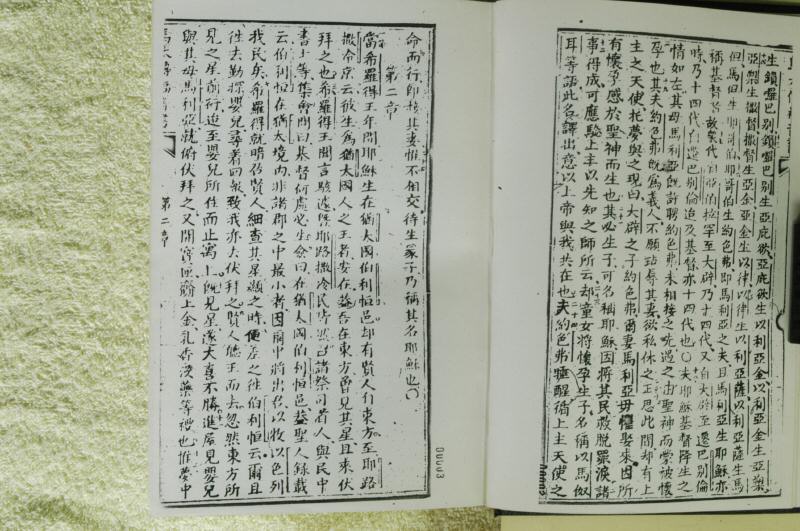 生鎖囉巴別鎖囉巴別生亞庇欲亞庇欲生以利亞金以利亞金生亞梁
亞梁生撒督撒督生亞金亞金生以律以律生以利亞薩以利亞薩生馬
但馬但生耶哥伯耶哥伯生約色弗即馬利亞之夫且馬利亞生耶穌亦
稱基督者故葉代自亞伯拉罕至大辟乃十四代又自大辟至遷巴別倫
時乃十四代自遷巴別倫迨及基督亦十四代也○夫耶穌基督降生之
情如左其母馬利亞既許聘約色弗未相接之先遇之由聖神而蒙被懷
孕也其夫約色弗既為義人不願玷辱其妻欲私休之正思此間却有上
主之天使托夢與之現曰大辟之子約色弗爾妻馬利亞毋懼娶來因所
有懷孕感於聖神而生也其必生子可名稱耶穌因將其民救脫罪淚諸
事得成可應驗上主以先知之師所云却童女將懷孕生子名稱以馬奴
耳等語此名譯出意以上帝與我共在也夫約色弗寤醒循上主天使之
命而行即接其妻惟不相交待生冢子乃稱其名耶穌也○
第二章
當希羅得王年間耶穌生在猶太國伯利恒邑却有賢人自東方至耶路
撒冷京云彼生為猶太國人之王者安在蓋吾在東方曾見其星且來伏
拜之也希羅得王聞言駭遽既耶路撒冷民皆然召諸祭司者人與民中
書士等集會問曰基督何處必生僉曰在猶太國伯利恒邑蓋聖人錄載
云伯利恒在猶太境內非諸郡之中最小者因爾中將出君以牧以色列
我民矣希羅得就暗召賢人細查其星顯之時便差之徃伯利恒云爾且
徃去勤探嬰兒尋着回報致我亦去伏拜之賢人聽王而去忽然東方所
見之星前行迨至嬰兒所在而止寓上既見星遂大喜不勝進屋見嬰兒
與其母馬利亞就俯伏拜之又開寶匣齎上金乳香沒藥等禮也惟夢中
第二章
00003